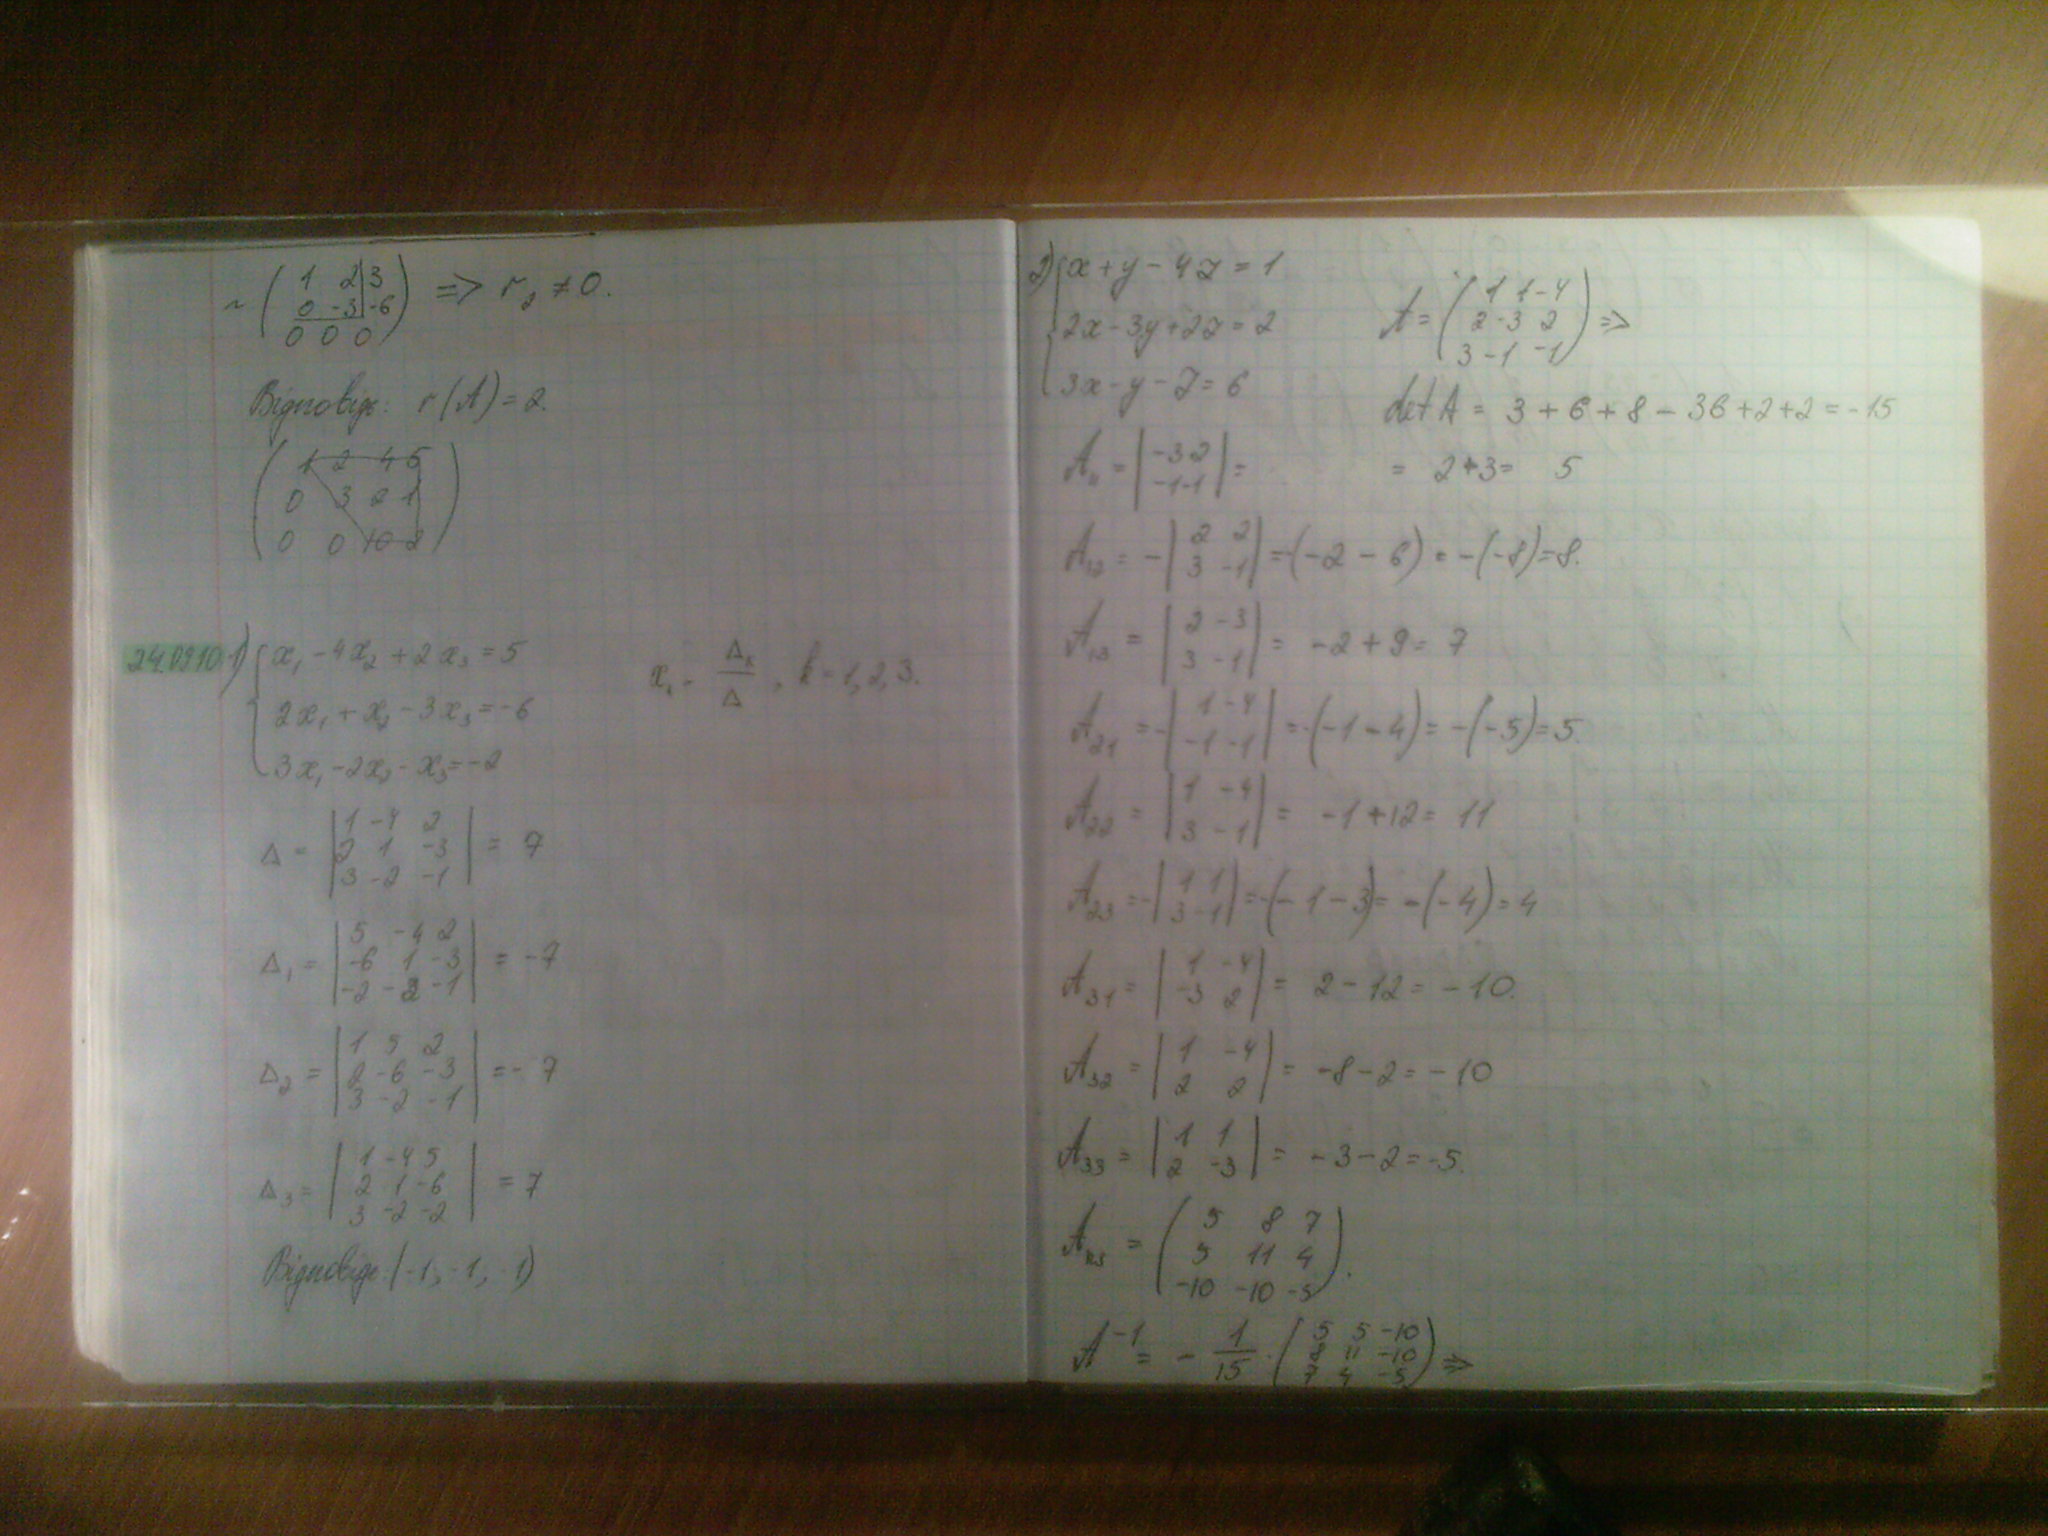 ~ ( 1 2 | 3
0 -3 | -6
0 0 0 ) => r₂ ≠ 0.
Відповідь: r(A) = 2.
( 1 2 4 5
0 3 2 1
0 0 10 2 )
24.09.10 1) { x₁ - 4x₂ + 2x₃ = 5
2x₁ + x₂ - 3x₃ = -6
3x₁ - 2x₂ - x₃ = -2
Δ = | 1 -4 2
2 1 -3
3 -2 -1 | = 7
Δ₁ = | 5 -4 2
-6 1 -3
-2 -2 -1 | = -7
Δ₂ = | 1 5 2
2 -6 -3
3 -2 -1 | = -7
Δ₃ = | 1 -4 5
2 1 -6
3 -2 -2 | = 7
Відповідь: (-1, -1, 1)
xₖ = Δₖ / Δ, k = 1, 2, 3.
2) { x + y - 4z = 1
2x - 3y + 2z = 2
3x - y - z = 6
A = ( 1 1 -4
2 -3 2
3 -1 -1 ) =>
det A = 3 + 6 + 8 - 36 + 2 + 2 = -15
A₁₁ = | -3 2
-1 -1 | = = 2 + 3 = 5
A₁₂ = - | 2 2
3 -1 | = -(-2 - 6) = -(-8) = 8.
A₁₃ = | 2 -3
3 -1 | = -2 + 9 = 7
A₂₁ = - | 1 -4
-1 -1 | = -(-1 - 4) = -(-5) = 5.
A₂₂ = | 1 -4
3 -1 | = -1 + 12 = 11
A₂₃ = - | 1 1
3 -1 | = -(-1 - 3) = -(-4) = 4
A₃₁ = | 1 -4
-3 2 | = 2 - 12 = -10.
A₃₂ = | 1 -4
2 2 | = -8 - 2 = -10
A₃₃ = | 1 1
2 -3 | = -3 - 2 = -5.
A = ( 5 8 7
5 11 4
-10 -10 -5 ).
A⁻¹ = - 1/15 · ( 5 5 -10
8 11 -10
7 4 -5 ) =>